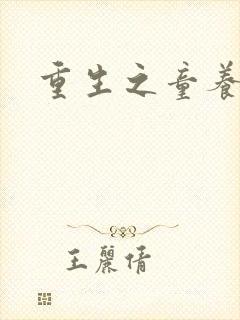 重生之童養
王麗倩